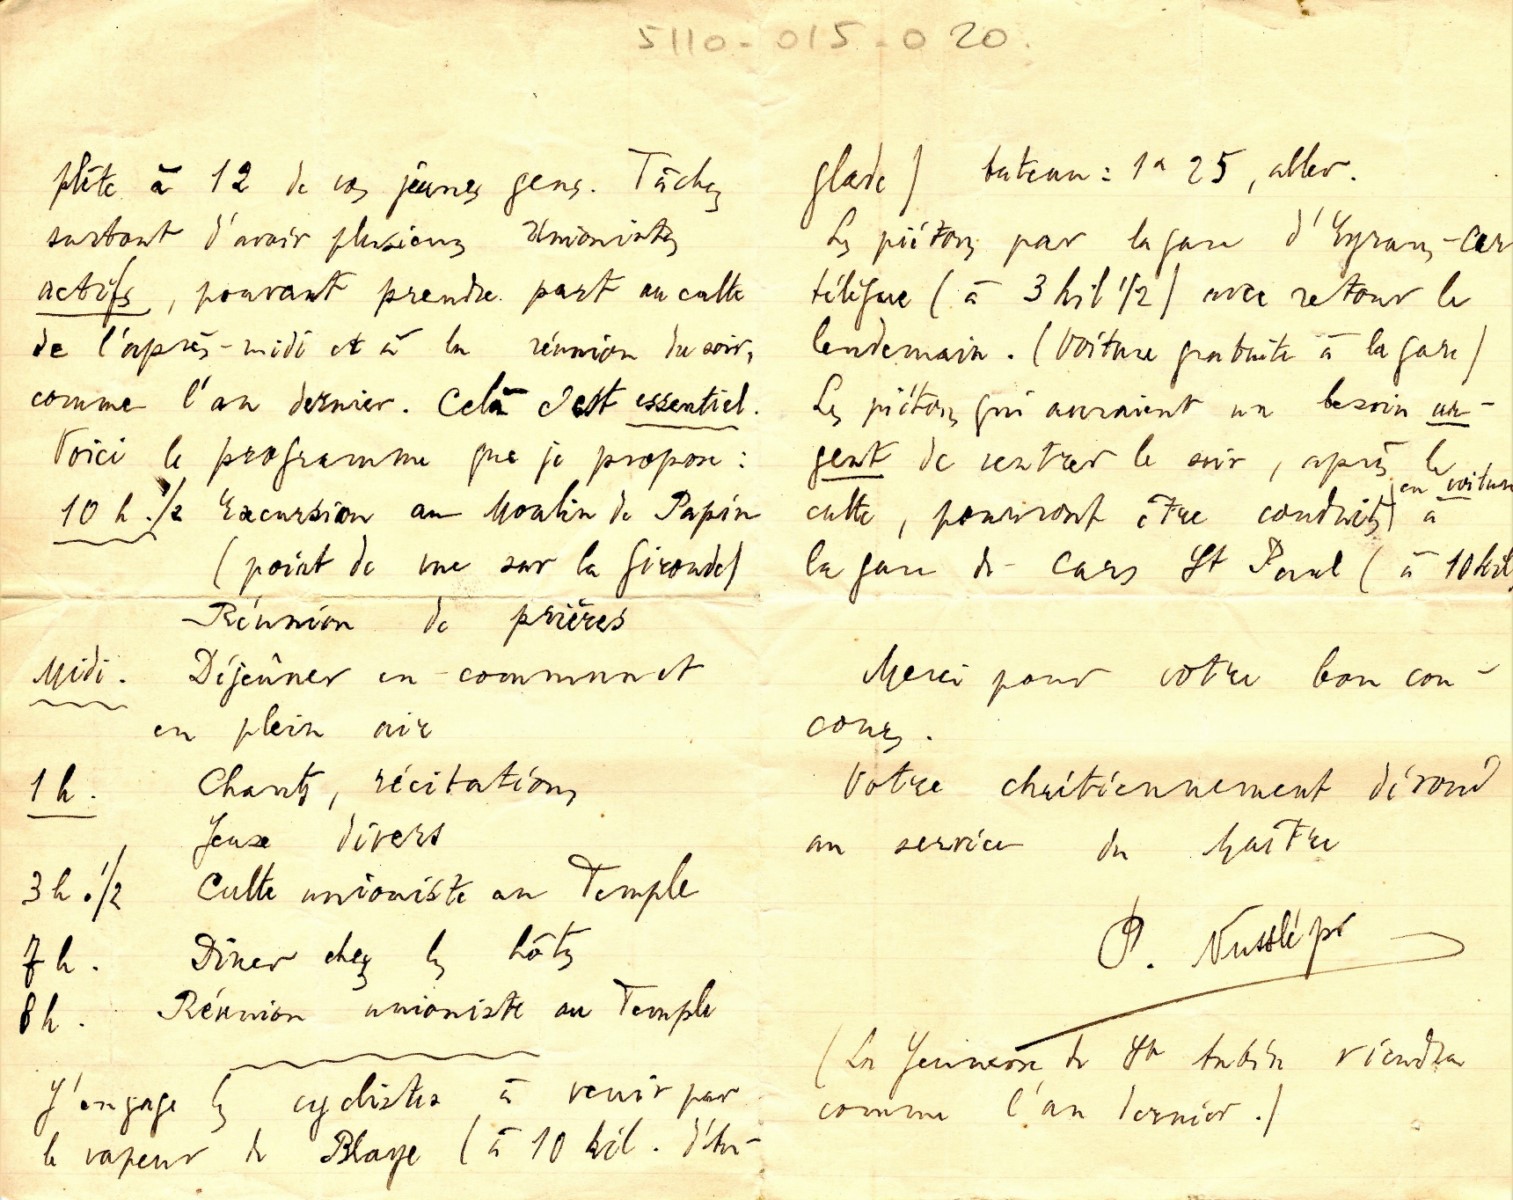 5110-015-020.
plète à 12 de vos jeunes gens. Tâchez
surtout d'avoir plusieurs Unionistes
actifs, pouvant prendre part au culte
de l'après-midi et à la réunion du soir,
comme l'an dernier. Celà c'est essentiel.
Voici le programme que je propose :
10 h. 1/2 Excursion au Moulin de Papin
(point de vue sur la Gironde)
Réunion de prières
Midi. Déjeûner en commun et
en plein air
1 h. Chants, récitations,
Jeux divers
3 h. 1/2 Culte unioniste au Temple
7 h. Dîner chez les hôtes
8 h. Réunion unioniste au Temple
J'engage les cyclistes à venir par
le vapeur de Blaye (à 10 kil. d'Au-
glade) bateau : 1f 25, aller.
Les piétons par la gare d'Eyrans-Car
télégue (à 3 kil 1/2) avec retour le
lendemain. (Voiture gratuite à la gare)
Les piétons qui auraient un besoin ur-
gent de rentrer le soir, après le
culte, pourront être conduits en voiture à
la gare de Cars St Paul (à 10 kil)
Merci pour votre bon con-
cours.
Votre chrétiennement dévoué
au service du Maître
P. Nusslé pr
(La Jeunesse de St Aubin viendra
comme l'an dernier.)